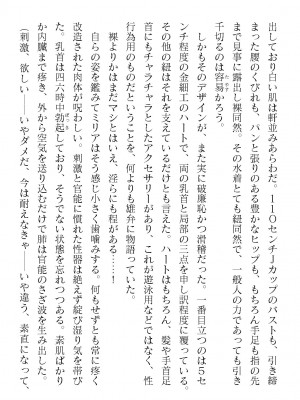 出しており白い肌は軒並みあらわだ。110センチJカップのバストも、引き締
まった腰のくびれも、パンと張りのある豊かなヒップも、もちろん手足も指の先
まで見事に露出し裸同然。その水着とても紐同然で、一般人の力であっても引き
千切るのは容易かろう。
しかもそのデザインが、また実に破廉恥かつ滑稽だった。一番目立つのは5セ
ンチ程度の金細工のハートで、両の乳首と局部の三点を申し訳程度に覆っている。
その他の紐はそれを支えているだけとも言えた。ハートはもちろん、髪や手首足
首にもチャラチャラとしたアクセサリーがあり、これが遊泳用などではなく、性
行為用のものだということを、何よりも雄弁に物語っていた。
裸よりかはまだマシとはいえ、淫らにも程がある……！
自らの姿を鑑みてミリアはそう感じ小さく歯噛みする。何もせずとも常に疼く
改造された肉体が呪わしい。刺激と官能に慣れた性器は絶えず綻び湿り気を帯び
た。乳首は四六時勃起しており、そうでない状態を忘れつつある。素肌ばかり
か内臓まで疼き、外から空気を送り込むだけで肺は官能のさざ波を生み出した。
（刺激、欲しい――いやダメだ、今は耐えなきゃ――いや違う、素直になって、